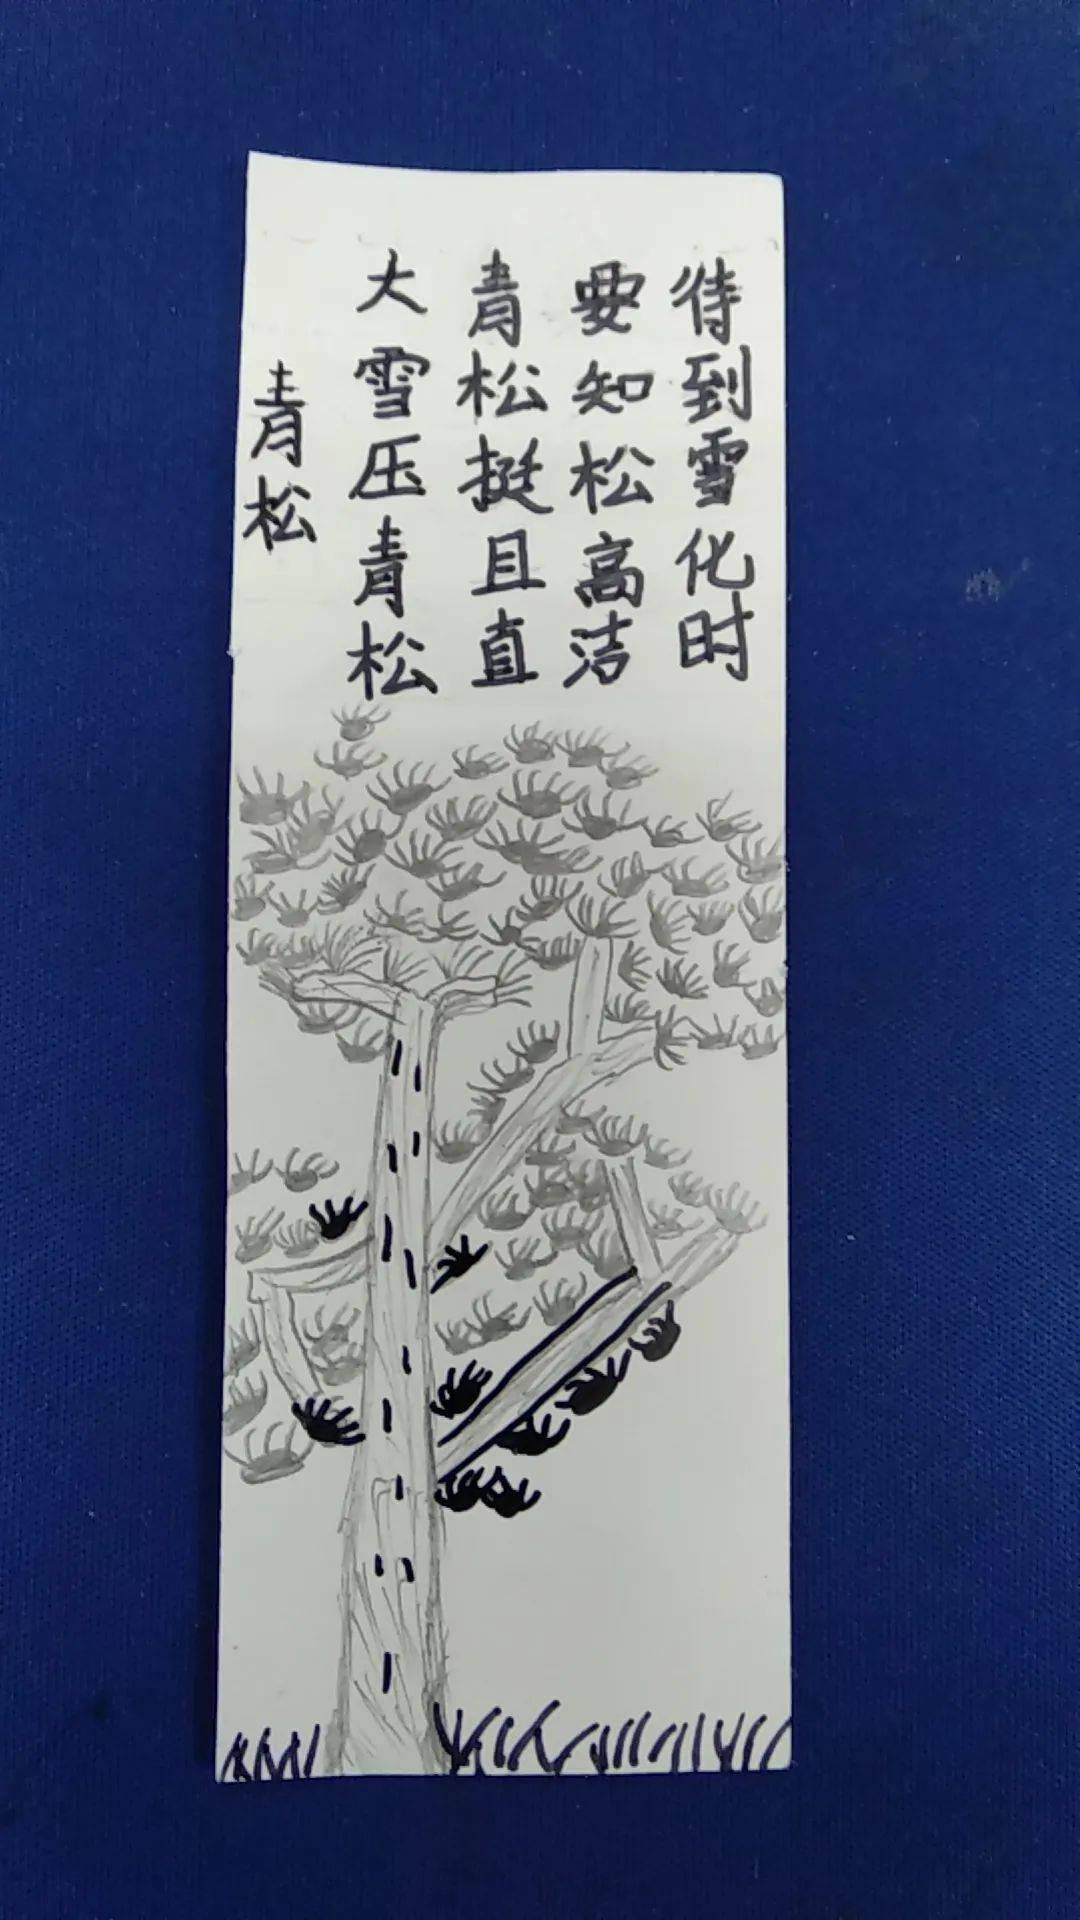 青松
大雪压青松
青松挺且直
要知松高洁
待到雪化时